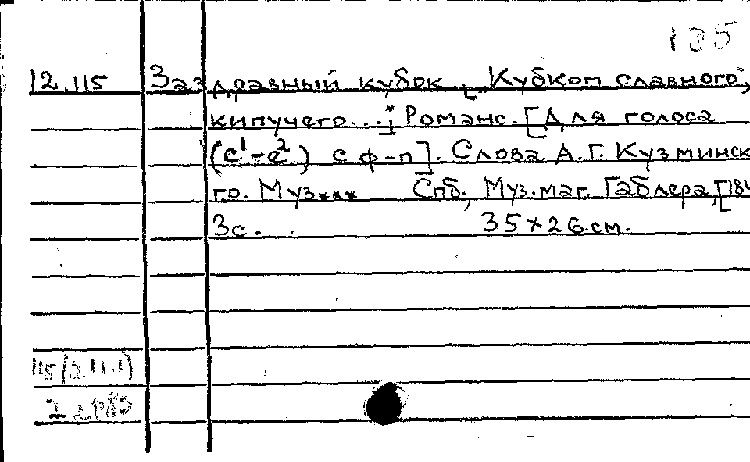 135
12.115 Заздравный кубок [„Кубком славного,
кипучего...“] Романс. [Для голоса
(c¹-e²) с ф-п]. Слова А.Г. Кузминск
го. Муз*** Спб., Муз. маг. Габлера, [184
3с. 35×26 см.